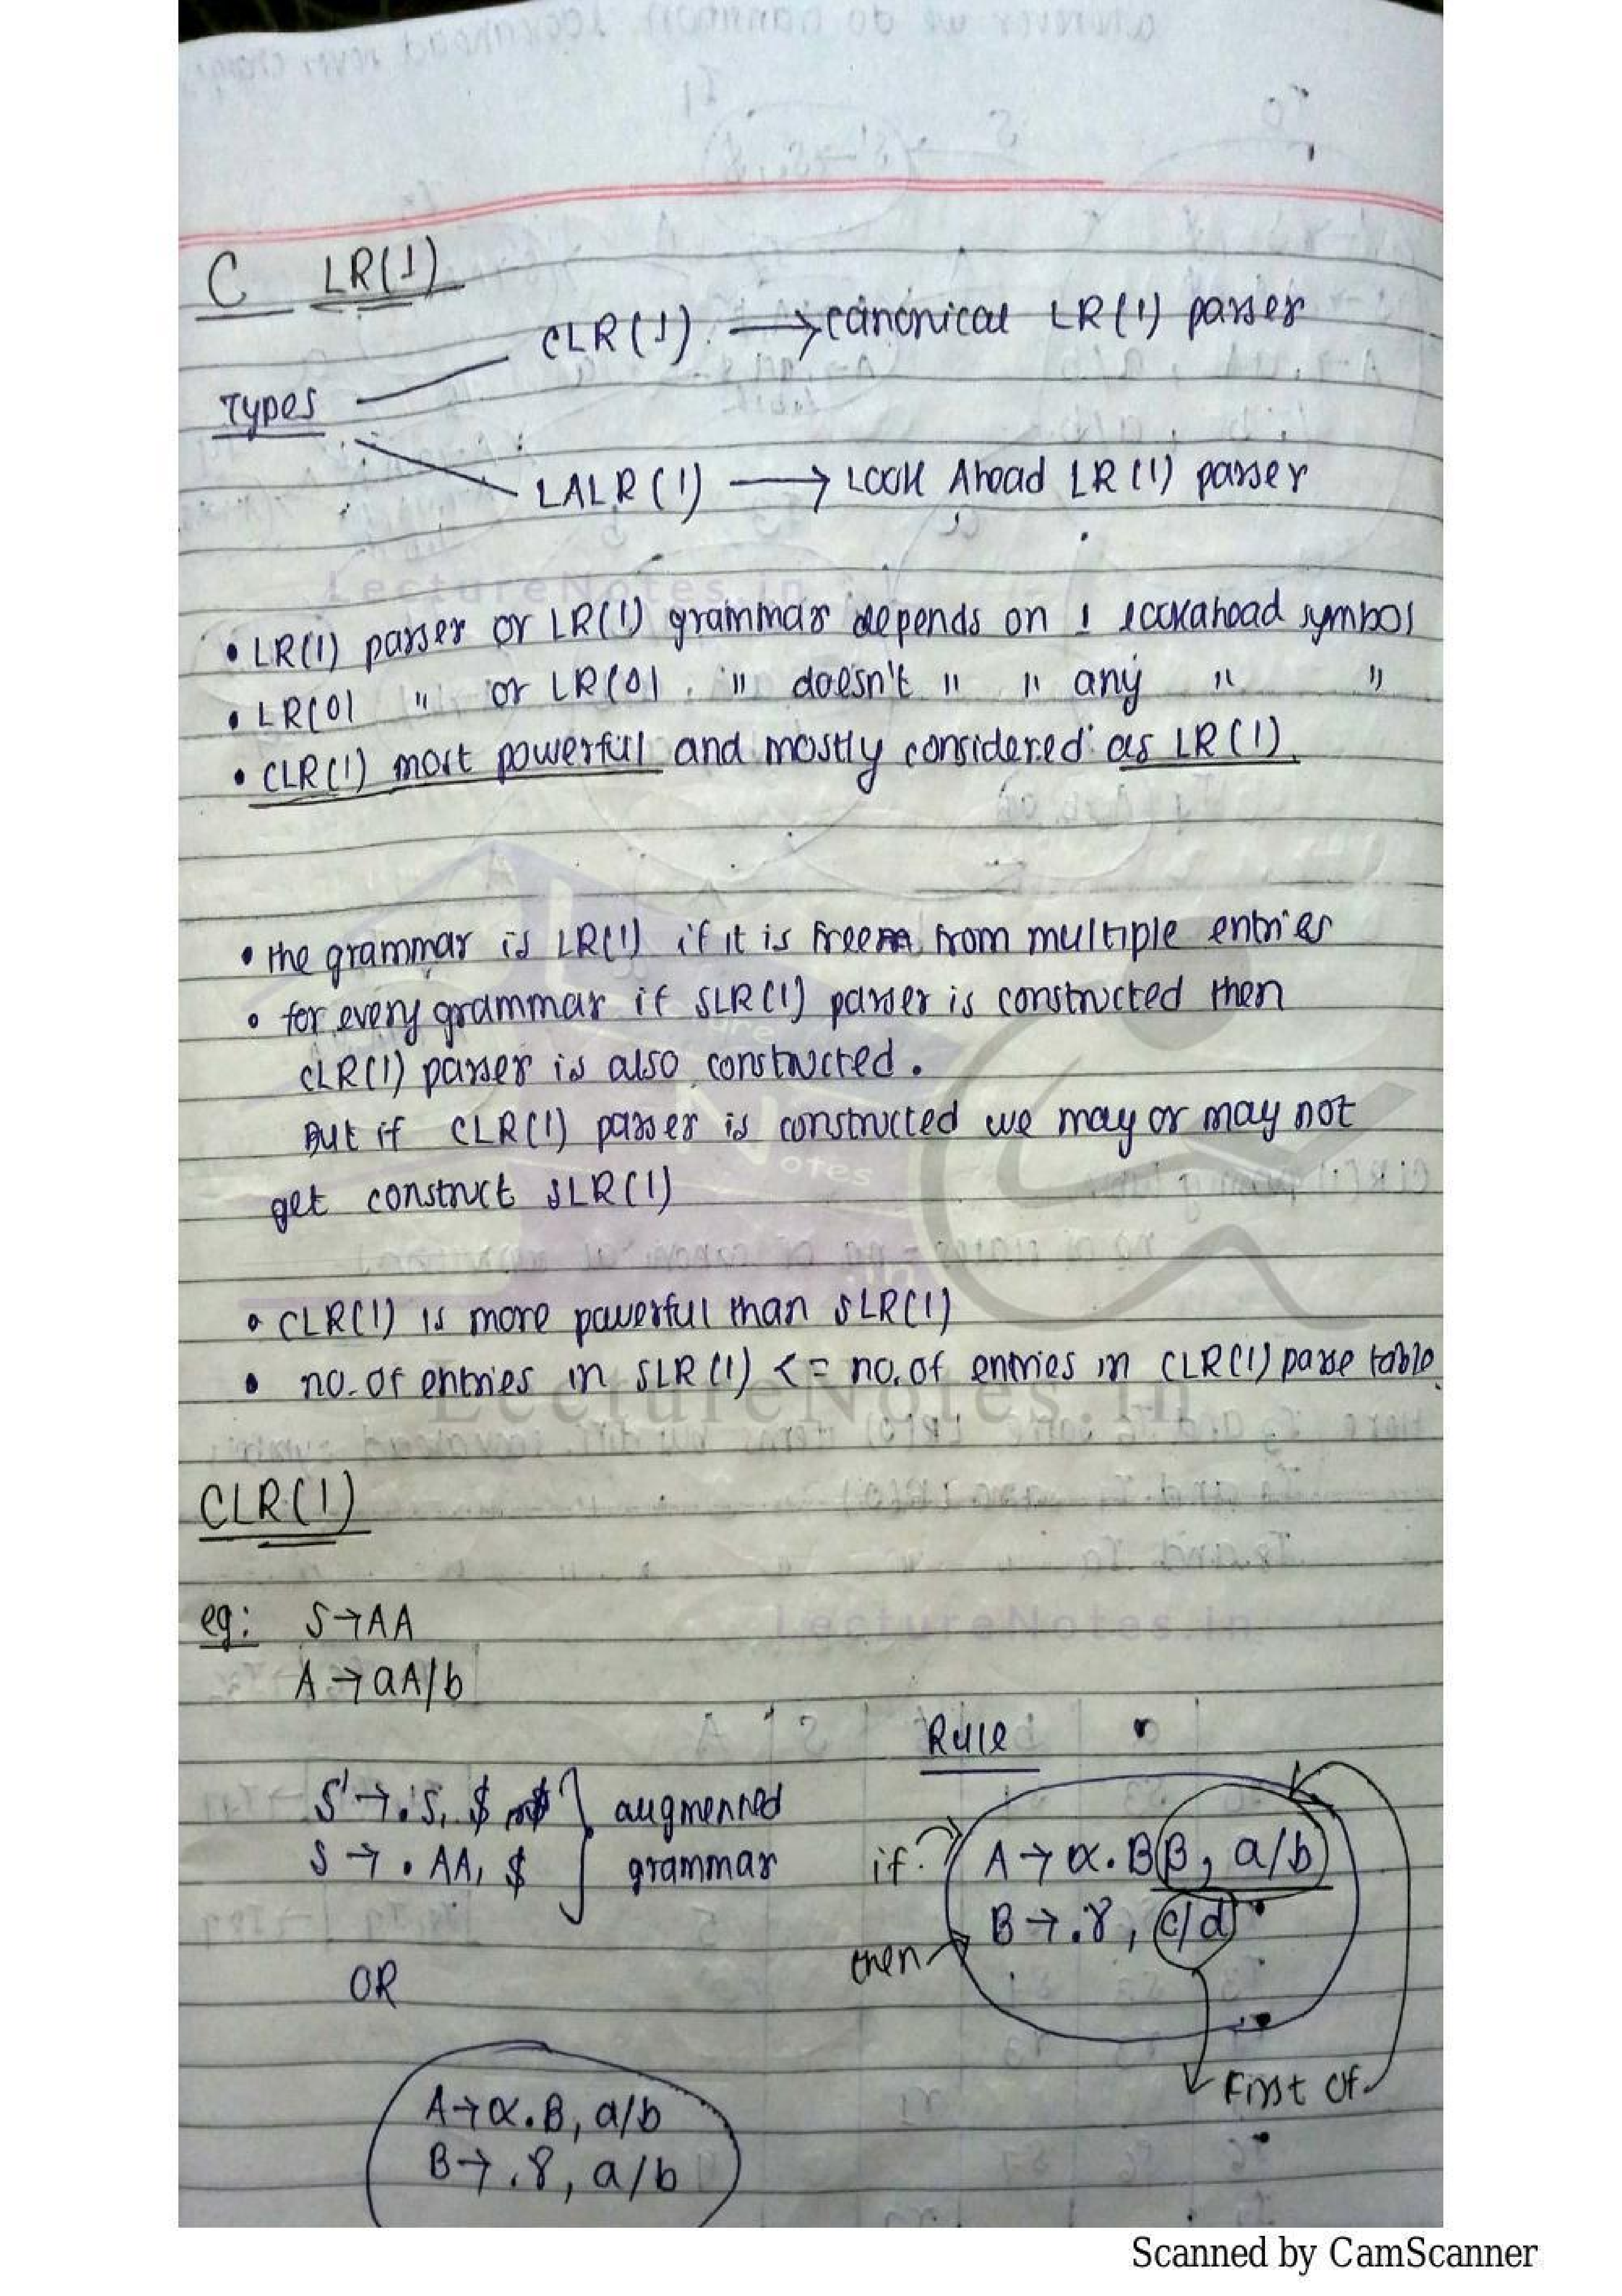 C LR(1)
CLR(1) → canonical LR(1) parser
Types
LALR(1) → Look Ahead LR(1) parser
LectureNotes.in
• LR(1) parser or LR(1) grammar depends on 1 lookahead symbol
• LR(0) " or LR(0) " doesn't " " any " "
• CLR(1) most powerful and mostly considered as LR(1)
• the grammar is LR(1) if it is free from multiple entries
• for every grammar if SLR(1) parser is constructed then
CLR(1) parser is also constructed.
But if CLR(1) parser is constructed we may or may not
get construct SLR(1)
• CLR(1) is more powerful than SLR(1)
• no. of entries in SLR(1) <= no. of entries in CLR(1) parse table
LectureNotes.in
CLR(1)
eg: S→AA
LectureNotes.in
A→aA/b
Rule
S'→.S, $ } augmented
S→.AA, $ grammar
if A→α.Bβ, a/b
then B→.γ, c/d
OR
First of
A→α.B, a/b
B→.γ, a/b
Scanned by CamScanner